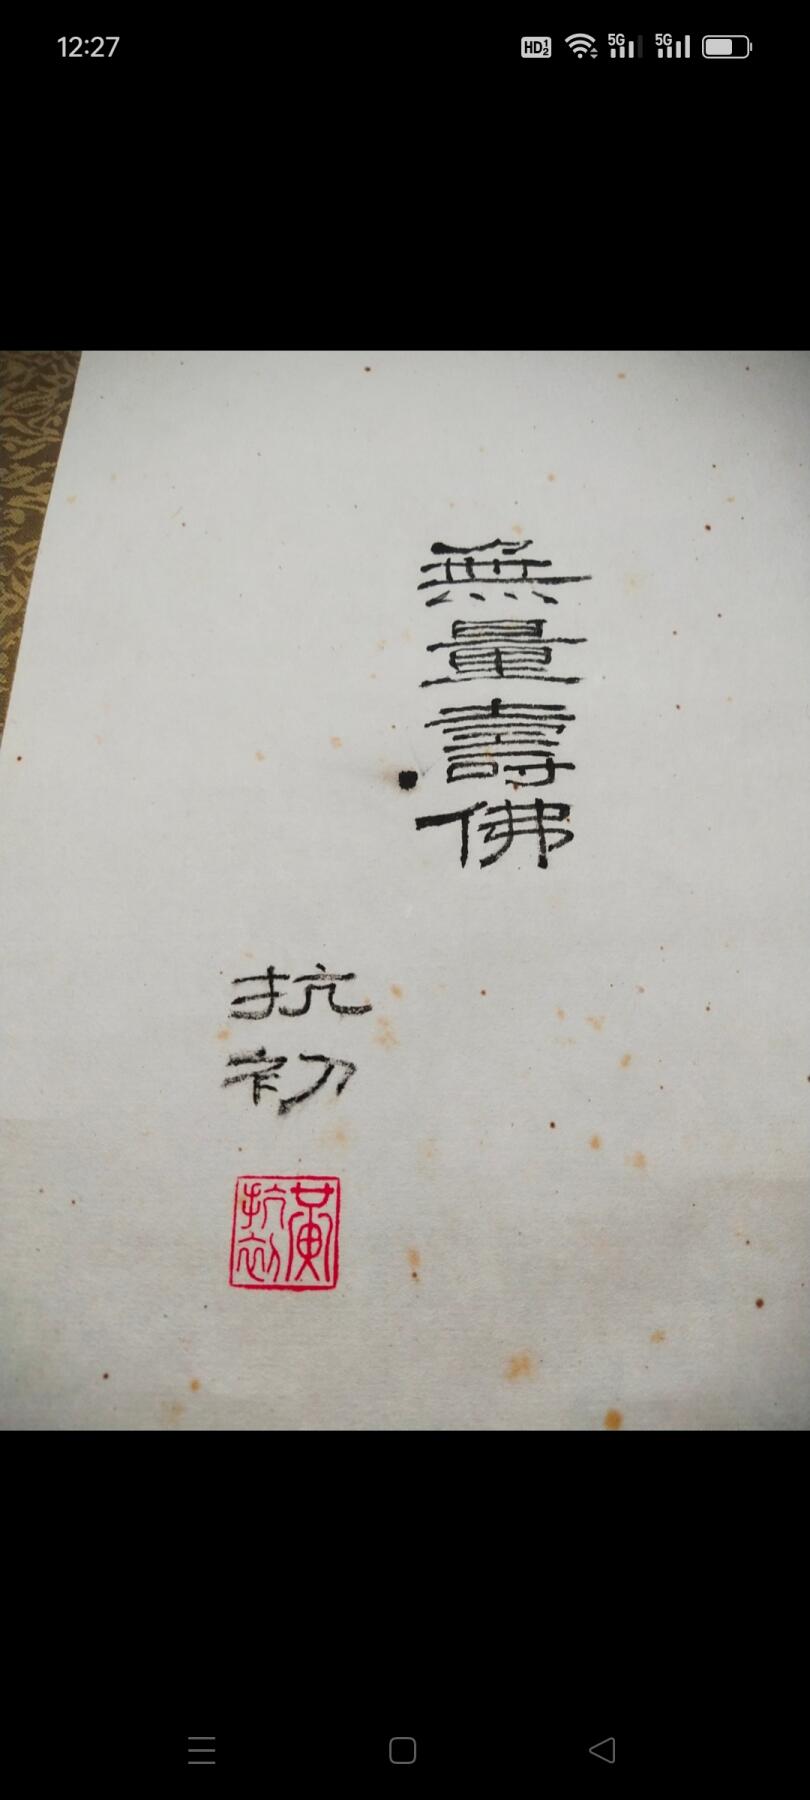 12:27
HD 1 2
5G
5G
無量壽佛
抗初
黃
抗初